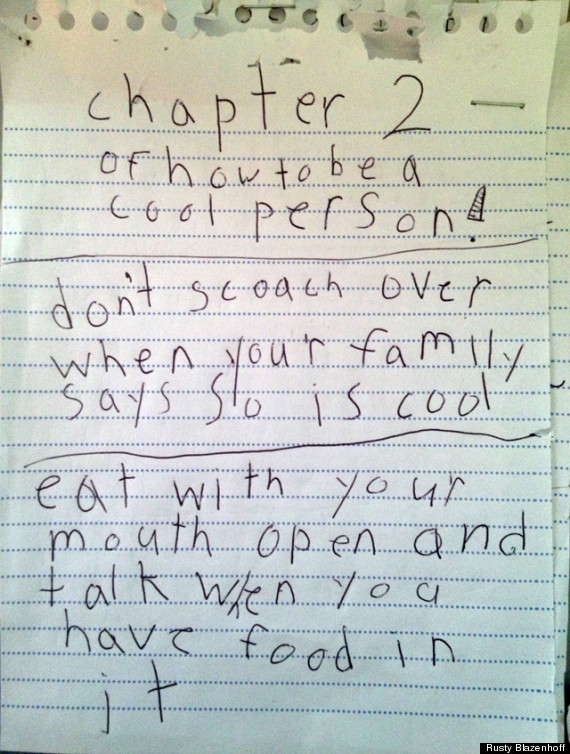 chapter 2 —
of how to be a
cool person!
don't scoach over
when your family
says so is cool
eat with your
mouth open and
talk when you
have food in
it
Rusty Blazenhoff